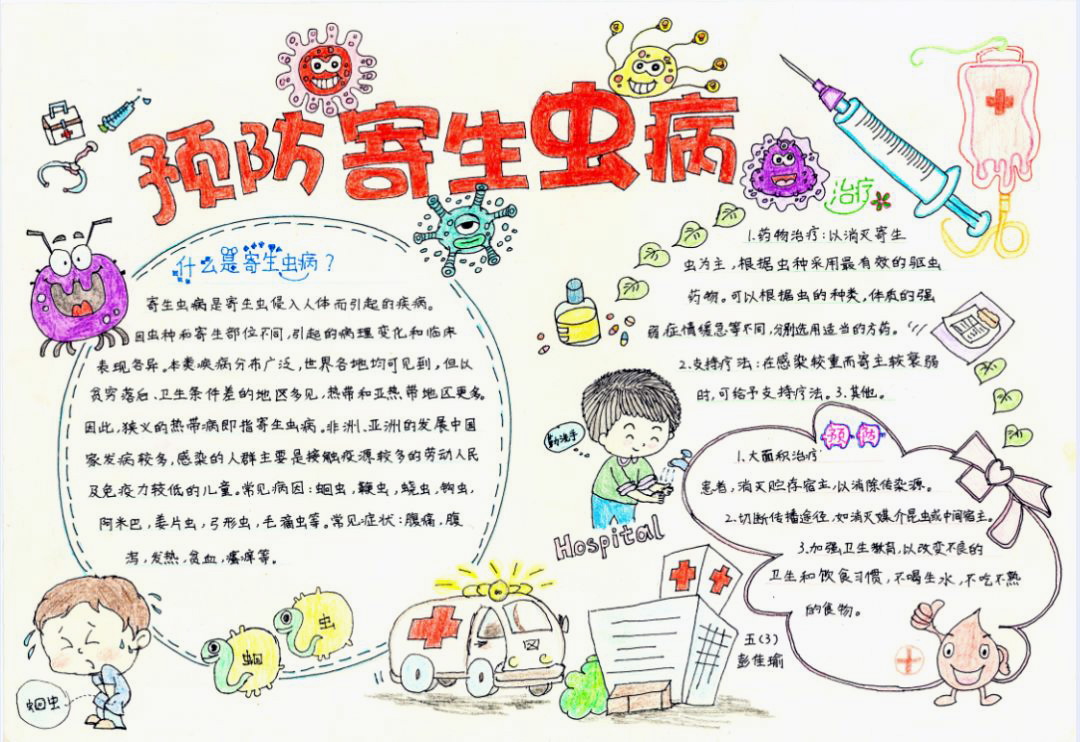 预防寄生虫病
什么是寄生虫病？
寄生虫病是寄生虫侵入人体而引起的疾病。
因虫种和寄生部位不同，引起的病理变化和临床
表现各异。本类疾病分布广泛，世界各地均可见到，但以
贫穷落后、卫生条件差的地区多见，热带和亚热带地区更多。
因此，狭义的热带病即指寄生虫病。非洲、亚洲的发展中国
家发病较多，感染的人群主要是接触疫源较多的劳动人民
及免疫力较低的儿童。常见病因：蛔虫，鞭虫，蛲虫，钩虫，
阿米巴，姜片虫，弓形虫，毛滴虫等。常见症状：腹痛，腹
泻，发热，贫血，瘙痒等。
蛔虫
虫
治疗
1.药物治疗：以消灭寄生
虫为主，根据虫种采用最有效的驱虫
药物。可以根据虫的种类，体质的强
弱，症情缓急等不同，分别选用适当的方药。
2.支持疗法：在感染较重而寄主较衰弱
时，可给予支持疗法。3.其他。
勤洗手
Hospital
预防
1.大面积治疗
患者，消灭贮存宿主，以消除传染源。
2.切断传播途径，如消灭媒介昆虫或中间宿主。
3.加强卫生教育，以改变不良的
卫生和饮食习惯，不喝生水，不吃不熟
的食物。
五（3）
彭佳瑜